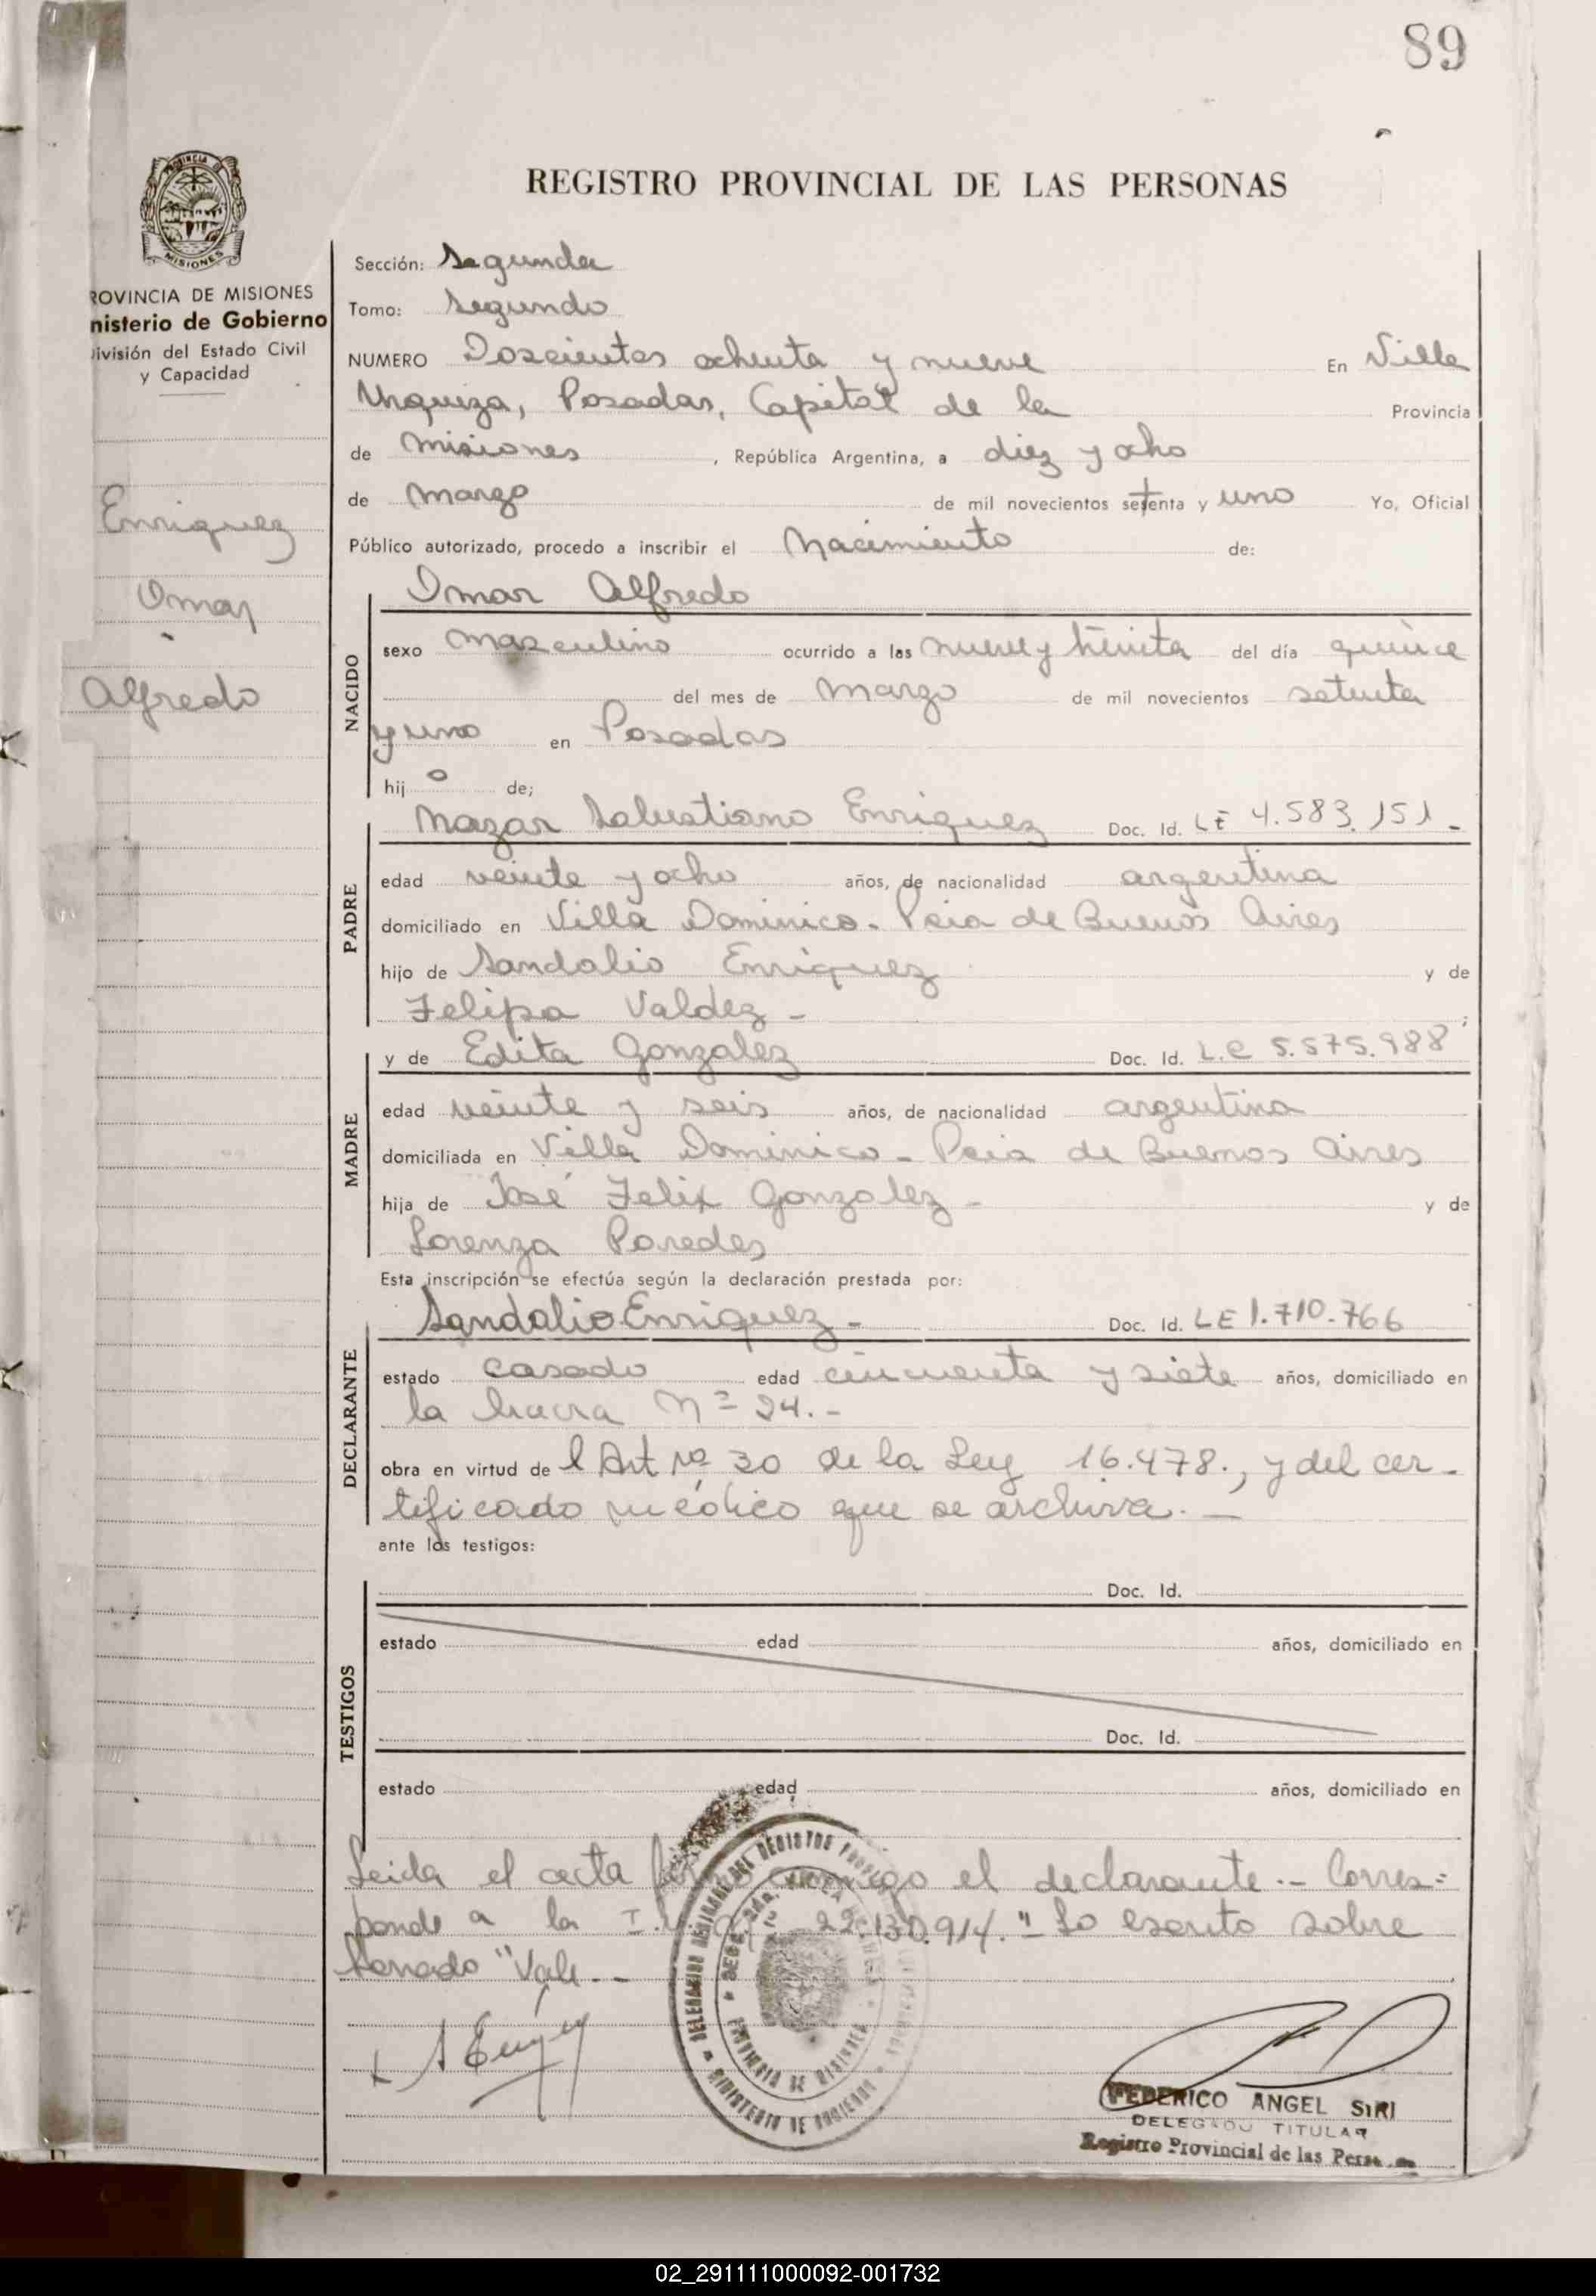 89
PROVINCIA DE
MISIONES
REGISTRO PROVINCIAL DE LAS PERSONAS
ROVINCIA DE MISIONES
nisterio de Gobierno
ivisión del Estado Civil
y Capacidad
Enriquez
Omar
Alfredo
Sección: Segunda
Tomo: Segundo
NUMERO Doscientos ochenta y nueve En Villa
Urquiza, Posadas, Capital de la Provincia
de Misiones, República Argentina, a diez y ocho
de Marzo de mil novecientos setenta y uno Yo, Oficial
Público autorizado, procedo a inscribir el Nacimiento de:
NACIDO
Omar Alfredo
sexo Masculino ocurrido a las nueve y treinta del día quince
del mes de Marzo de mil novecientos setenta
y uno en Posadas
hijo de;
PADRE
Nazar Salustiano Enriquez Doc. Id. LE 4.583.151-
edad veinte y ocho años, de nacionalidad argentina
domiciliado en Villa Dominico - Pcia de Buenos Aires
hijo de Sandalio Enriquez y de
Felipa Valdez - ;
MADRE
y de Edita Gonzalez Doc. Id. L.C 5.575.988
edad veinte y seis años, de nacionalidad argentina
domiciliada en Villa Dominico - Pcia de Buenos Aires
hija de José Felix Gonzalez - y de
Lorenza Paredes
Esta inscripción se efectúa según la declaración prestada por:
DECLARANTE
Sandalio Enriquez - Doc. Id. LE 1.710.766
estado casado edad cincuenta y siete años, domiciliado en
la chacra Nº 24.-
obra en virtud del Art Nº 30 de la Ley 16.478., y del cer-
tificado médico que se archiva. -
ante los testigos:
TESTIGOS
Doc. Id.
estado edad años, domiciliado en
Doc. Id.
estado edad años, domiciliado en
Leida el acta firma conmigo el declarante.- Corres=
ponde a la 22.130.914. "Lo escrito sobre
borrado" Vale.-
MINISTERIO DE GOBIERNO
PROVINCIA DE MISIONES
FEDERICO ANGEL SIRI
DELEGADO TITULAR
Registro Provincial de las Perso
02_291111000092-001732